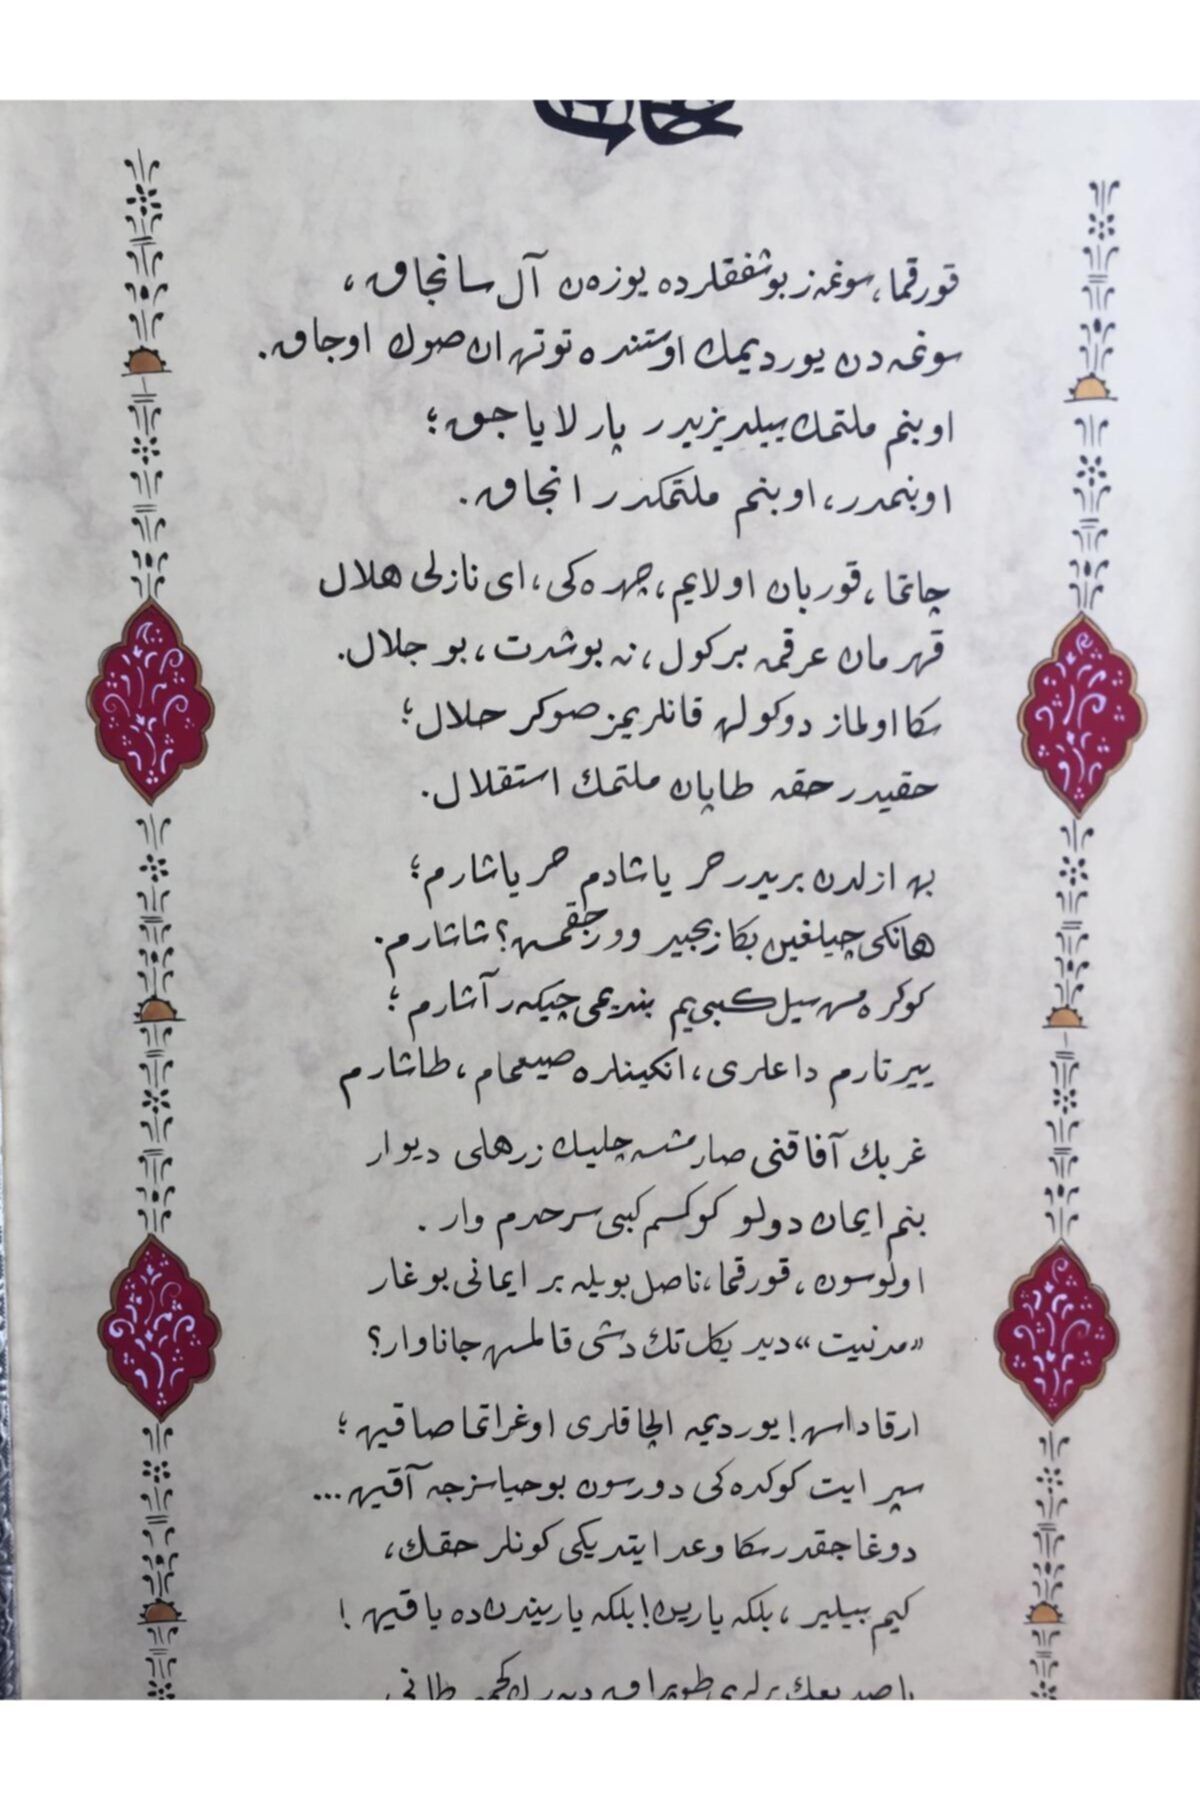 قورقما، سونمز بو شفقلرده یوزەن آل سانجاق،
سونمەدن یوردیمك اوستنده توتەن صوڭ اوجاق.
او بنم ملتمك ییلدیزیدر پارلایاجق؛
او بنمدر، او بنم ملتمكدر انجاق.
چاتما، قوربان اولایم، چهره‌كی، ای نازلی هلال
قهرمان عرقمه بر كول، نه بو شدت، بو جلال.
سكا اولماز دوكولن قانلریمز صوكر حلال؛
حقیدر حقه طاپان ملتمك استقلال.
بن ازلدن بریدر حر یاشادم حر یاشارم؛
هانكی چیلغین بكا زنجیر وورجقمش؟ شاشارم.
كوكره‌مش سیل كبی‌یم بندیمی چیكنر آشارم؛
ییرتارم داغلری، انكینلره صیغمام، طاشارم
غربك آفاقنی صارمشسه چلیك زرهلی دیوار
بنم ایمان دولو كوكسم كبی سرحدم وار.
اولوسون، قورقما، ناصل بویله بر ایمانی بوغار
«مدنیت» دیدیكك تك دشی قالمش جاناوار؟
ارقاداش! یوردیمه الچاقلری اوغراتما صاقین؛
سپر ایت كوكده‌كی دورسون بو حیاسزجه آقین...
دوغاجقدر سكا وعد ایتدیكی كونلر حقك،
كیم بیلیر، بلكه یارین! بلكه یاریندن ده یاقین!